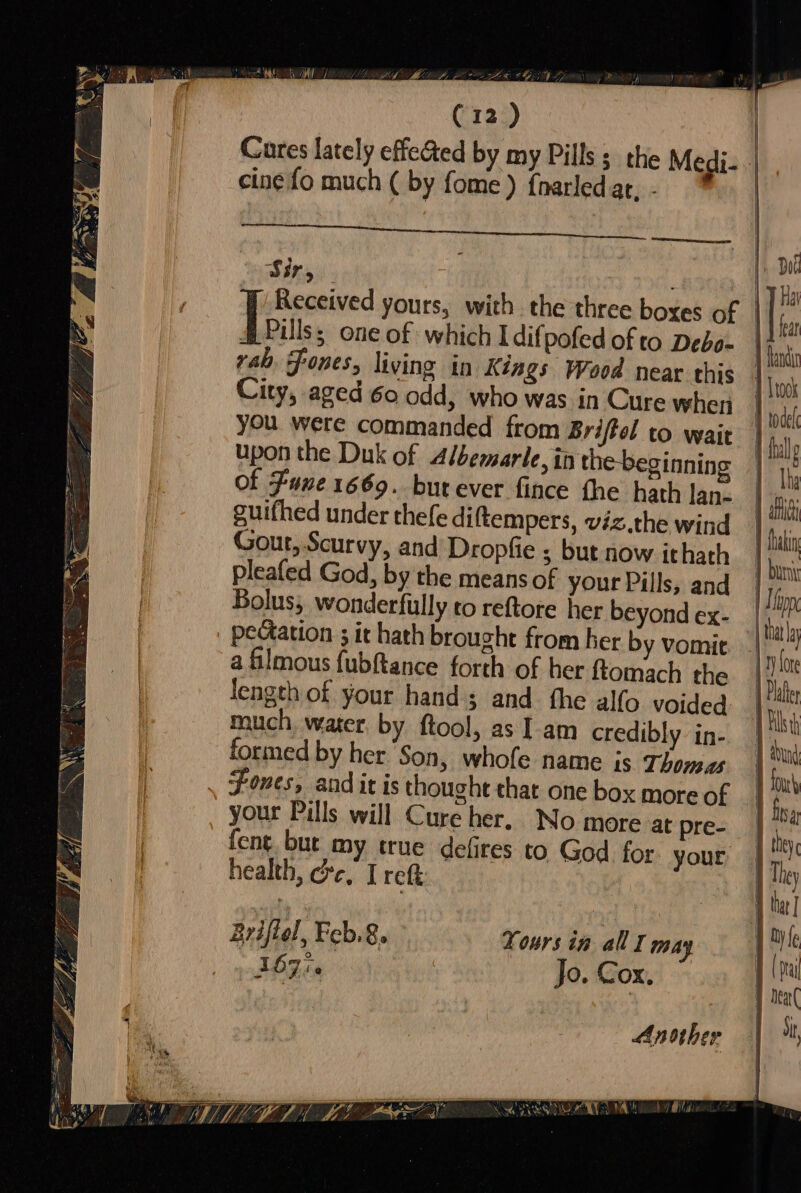 (12)
Cures lately effected by my Pills; the Medi-
cine ſo much (by ſome) ſnarled at, -
Sir,
I Received yours, with the three boxes of
Pills; one of which I diſpoſed of to Debo-
rah Jones, living in Kings Wood near this
City, aged 60 odd, who was in Cure when
you were commanded from Briſtol to wait
upon the Duk of Albemarle, in the beginning
of June 1669. but ever ſince ſhe hath lan-
guiſhed under theſe diſtempers, viz. the wind
Gout, Scurvy, and Dropſie; but now it hath
pleaſed God, by the means of your Pills, and
Bolus; wonderfully to reſtore her beyond ex-
pectation; it hath brought from her by vomit
a filmous ſubſtance forth of her ſtomach the
length of your hand; and ſhe alſo voided
much water by ſtool, as I am credibly in-
formed by her Son, whoſe name is Thomas
Jones, and it is thought that one box more of
your Pills will Cure her. No more at pre-
ſent but my true deſires to God for your
health, &c. I reſt
Briſtol, Feb. 8. Yours in all I may
167 Jo. Cox.
Another